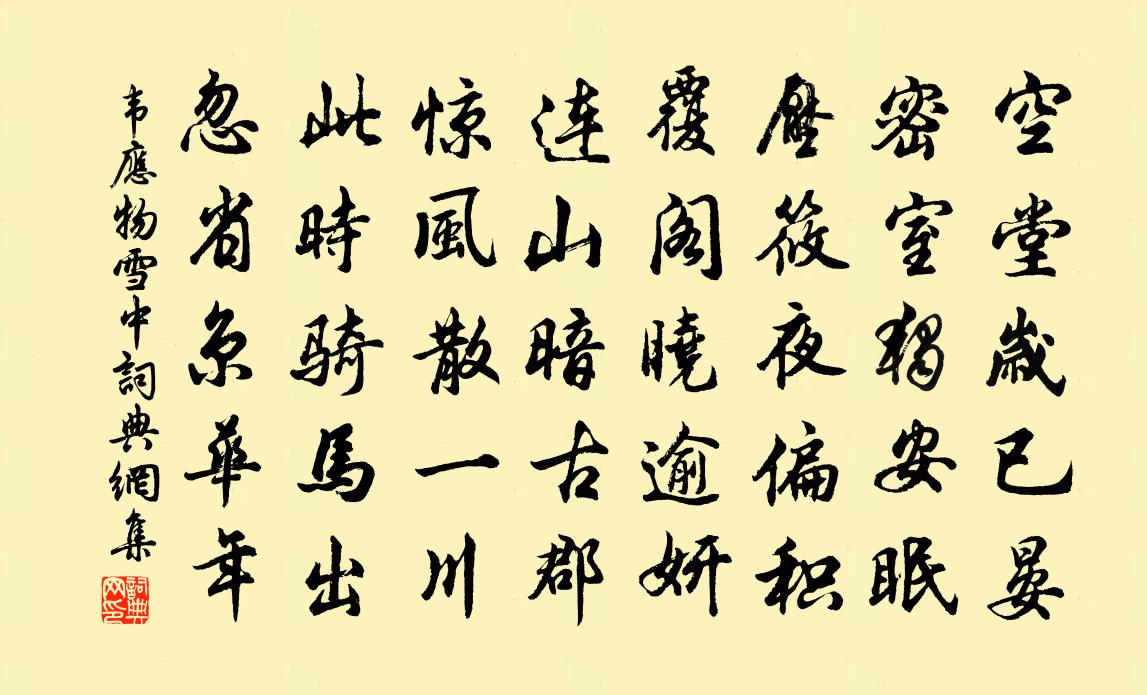 空堂歲已晏
密室獨安眠
壓筱夜偏积
覆阁曉逾妍
連山暗古郡
惊風散一川
此時騎馬出
忽省京華年
韦應物雪中詞典網集
詞典网印